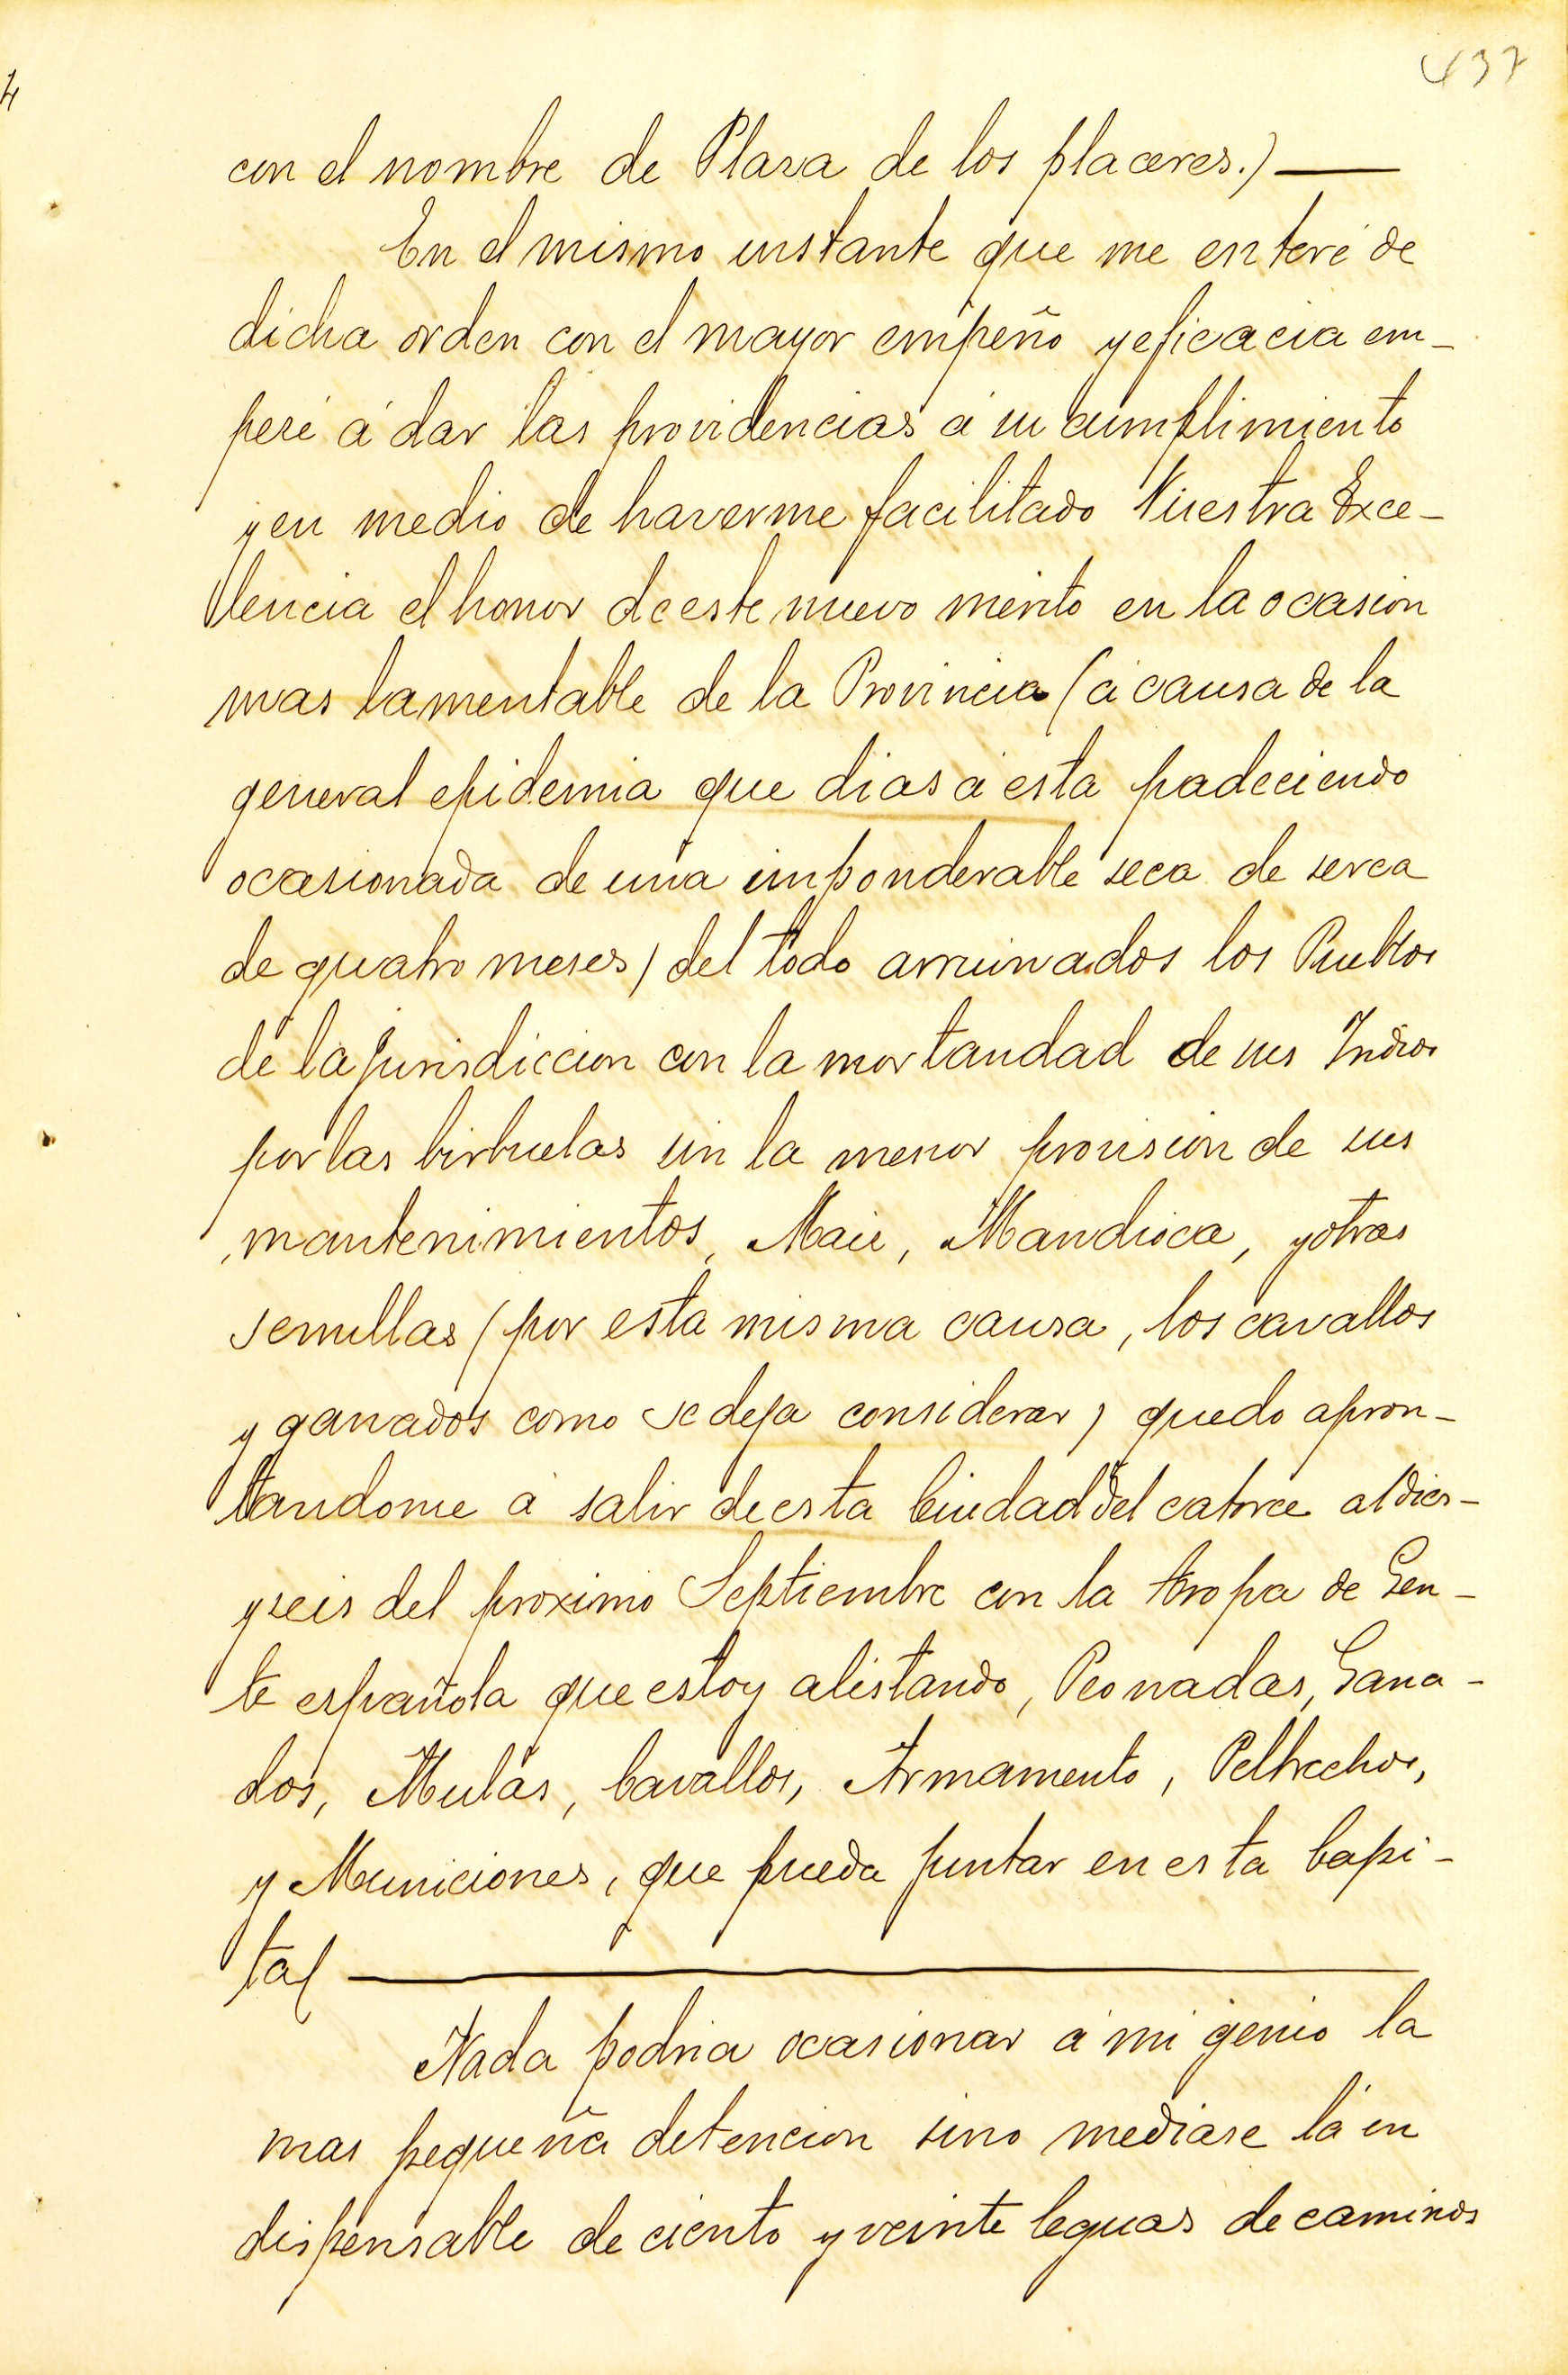 437
con el nombre de Plaza de los placeres.)
En el mismo instante que me enteré de
dicha orden con el mayor empeño y eficacia em-
pezé á dar las providencias á su cumplimiento
y en medio de haverme facilitado Vuestra Exce-
lencia el honor de este nuevo merito en la ocasion
mas lamentable de la Provincia (á causa de la
general epidemia que dias á esta padeciendo
ocasionada de una imponderable seca de serca
de quatro meses) del todo arruinados los Pueblos
de la jurisdiccion con la mortandad de sus Indios
por las birhuelas sin la menor provision de sus
mantenimientos, Maiz, Mandioca, y otras
semillas (por esta misma causa, los cavallos
y ganados como se deja considerar) quedo apron-
tandome á salir de esta Ciudad del catorce al diez-
y seis del proximo Septiembre con la tropa de Gen-
te española que estoy alistando, Peonadas, Gana-
dos, Mulas, Cavallos, Armamento, Peltrechos,
y Municiones, que pueda juntar en esta Capi-
tal
Nada podria ocasionar á mi genio la
mas pequeña detencion sino mediase la in
dispensable de ciento y veinte leguas de caminos